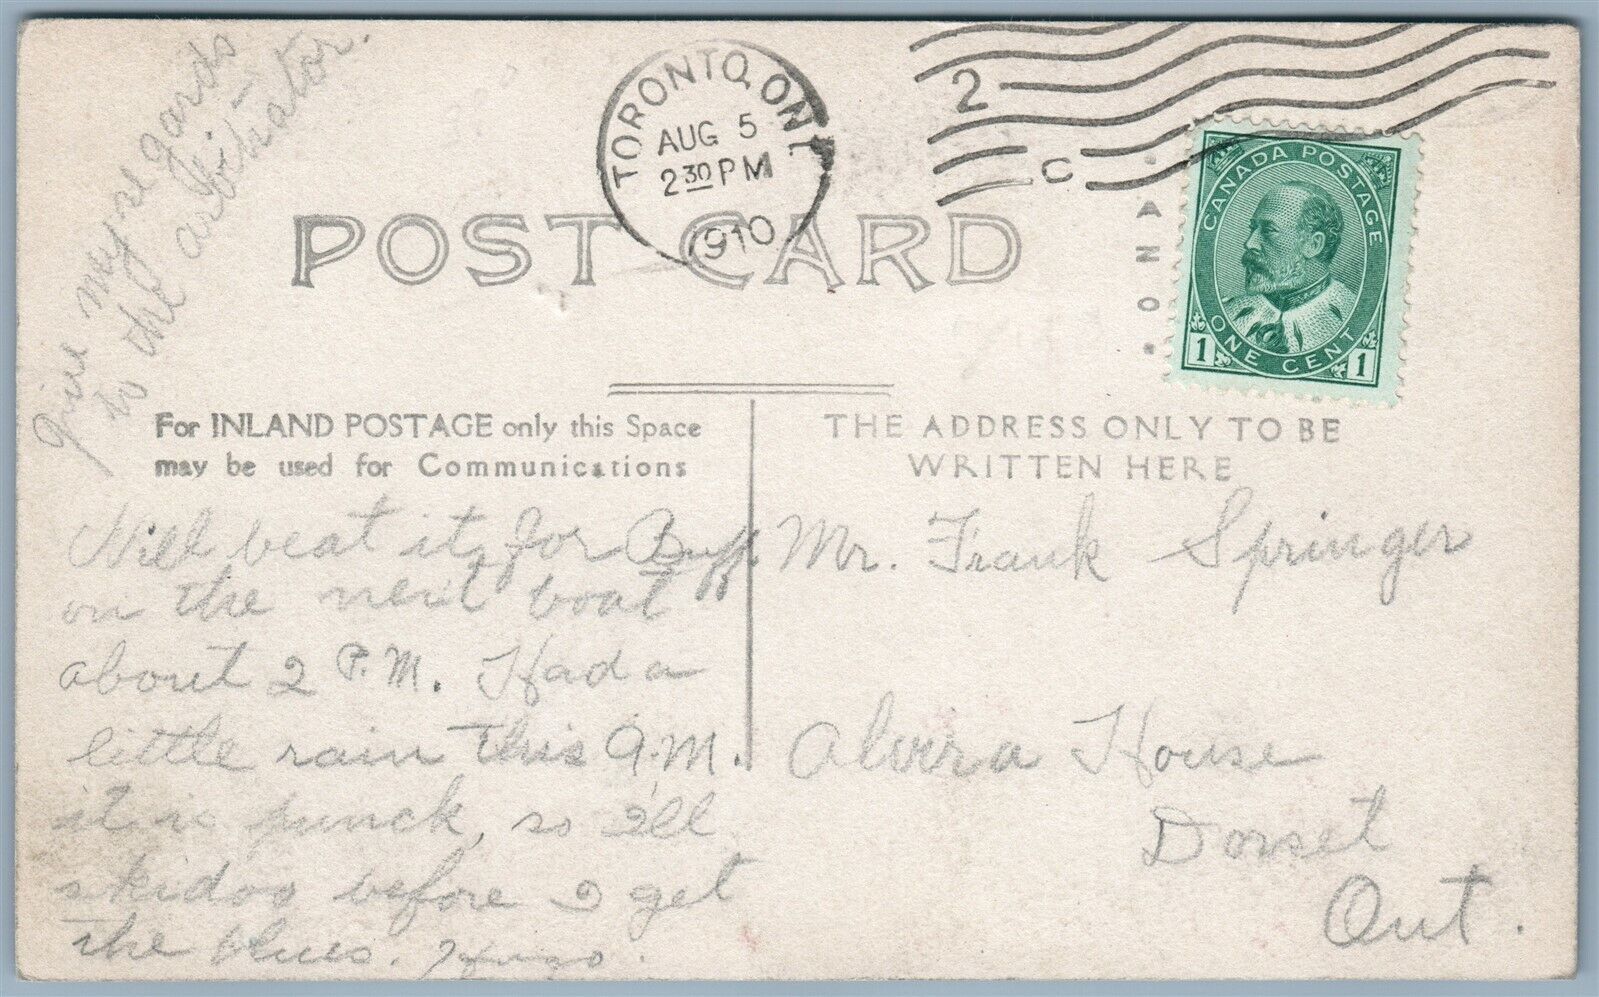 Give my regards
to the arbitrator.
TORONTO, ONT.
AUG 5
2 30 PM
1910
2
C
CANADA
POST CARD
CANADA POSTAGE
ONE CENT
1 1
For INLAND POSTAGE only this Space
may be used for Communications
THE ADDRESS ONLY TO BE
WRITTEN HERE
Will beat it for Buff.
on the next boat
about 2 P.M. Had a
little rain this A.M.
it is punck, so I'll
skidoo before I get
the blues. Hugo.
Mr. Frank Springer
Alvira House
Dorset
Ont.